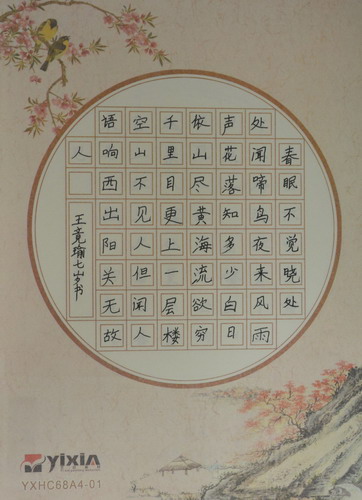 春眠不觉晓处
处闻啼鸟夜来风雨
声花落知多少白日
依山尽黄海流欲穷
千里目更上一层楼
空山不见人但闻人
语响西出阳关无故
人
王竟瑜七岁书
yixin
YXHC68A4-01